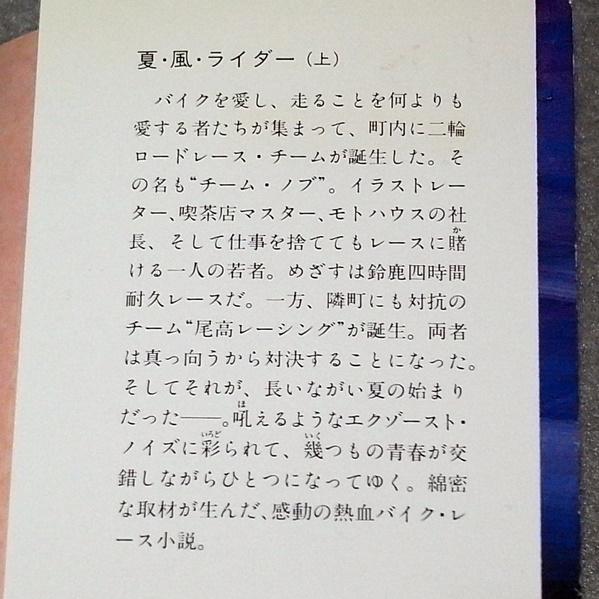 夏・風・ライダー（上）
バイクを愛し、走ることを何よりも
愛する者たちが集まって、町内に二輪
ロードレース・チームが誕生した。そ
の名も“チーム・ノブ”。イラストレー
ター、喫茶店マスター、モトハウスの社
長、そして仕事を捨ててもレースに賭
ける一人の若者。めざすは鈴鹿四時間
耐久レースだ。一方、隣町にも対抗の
チーム“尾高レーシング”が誕生。両者
は真っ向うから対決することになった。
そしてそれが、長いながい夏の始まり
だった――。吼えるようなエクゾースト・
ノイズに彩られて、幾つもの青春が交
錯しながらひとつになってゆく。綿密
な取材が生んだ、感動の熱血バイク・レ
ース小説。